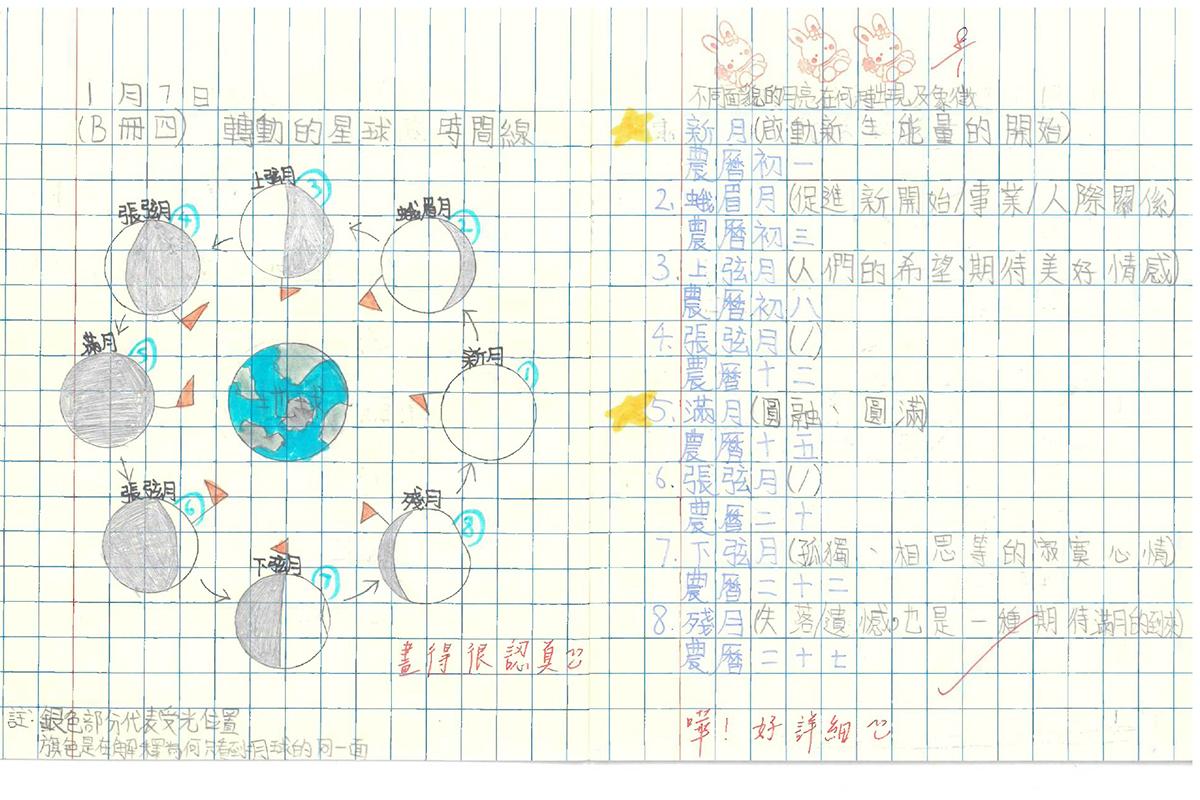 1月7日
(B冊四) 轉動的星球 時間線
上弦月 3
張弦月 4
蛾眉月 2
滿月 5
新月 1
張弦月 6
殘月 8
下弦月 7
畫得很認真
註:銀色部分代表受光位置
旗色是在解釋為何只看到月球的同一面
不同面貌的月亮在何時出現及象徵
1. 新月(啟動新生能量的開始)
農曆初一
2. 蛾眉月(促進新開始/事業/人際關係)
農曆初三
3. 上弦月(人們的希望、期待美好情感)
農曆初八
4. 張弦月(/)
農曆十二
5. 滿月(圓融、圓滿)
農曆十五
6. 張弦月(/)
農曆二十
7. 下弦月(孤獨、相思等的寂寞心情)
農曆二十二
8. 殘月(失落/遺憾,也是一種期待滿月的到來)
農曆二十七
嘩!好詳細